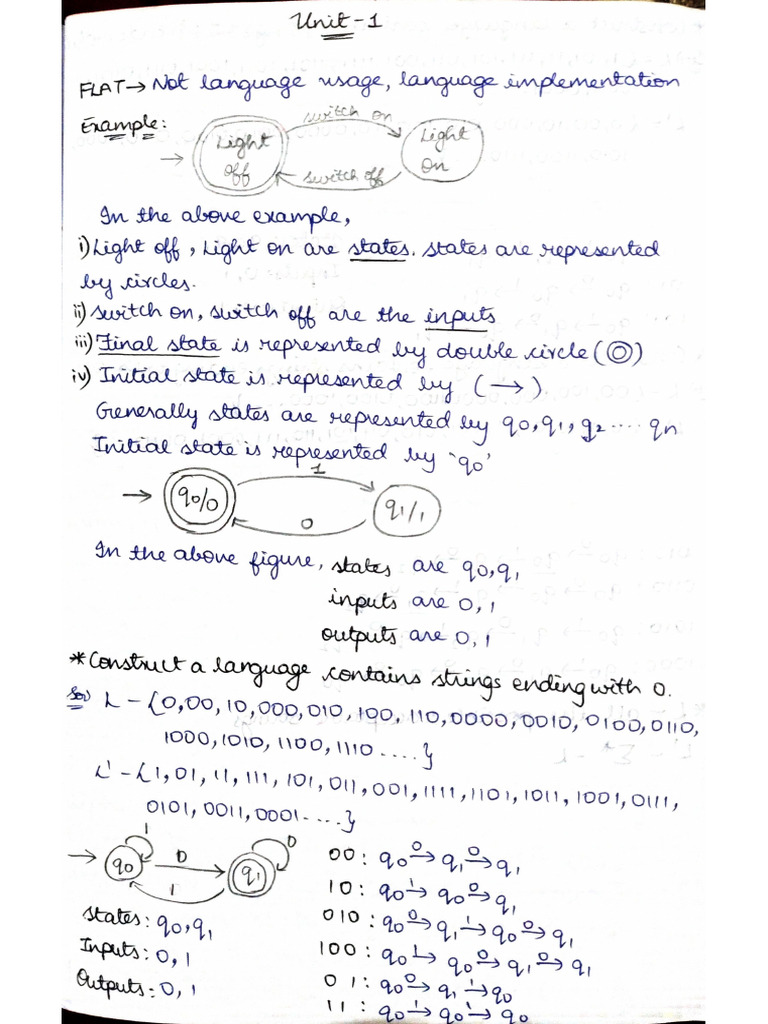 Unit-1
FLAT → Not language usage, language implementation
Example:
switch on
Light off
Light on
switch off
In the above example,
i) Light off, Light on are states. States are represented
by circles.
ii) switch on, switch off are the inputs
iii) Final state is represented by double circle (◎)
iv) Initial state is represented by (→)
Generally states are represented by q0, q1, q2 .... qn
Initial state is represented by 'q0'
1
q0/0
q1/1
0
In the above figure, states are q0, q1
inputs are 0, 1
outputs are 0, 1
*Construct a language contains strings ending with 0.
Sol) L - {0, 00, 10, 000, 010, 100, 110, 0000, 0010, 0100, 0110,
1000, 1010, 1100, 1110 ....}
L' - {1, 01, 11, 111, 101, 011, 001, 1111, 1101, 1011, 1001, 0111,
0101, 0011, 0001 ....}
1
0
q0
0
q1
1
00: q0 0→ q1 0→ q1
10: q0 1→ q0 0→ q1
010: q0 0→ q1 1→ q0 0→ q1
100: q0 1→ q0 0→ q1 0→ q1
01: q0 0→ q1 1→ q0
11: q0 1→ q0 1→ q0
States: q0, q1
Inputs: 0, 1
Outputs: 0, 1